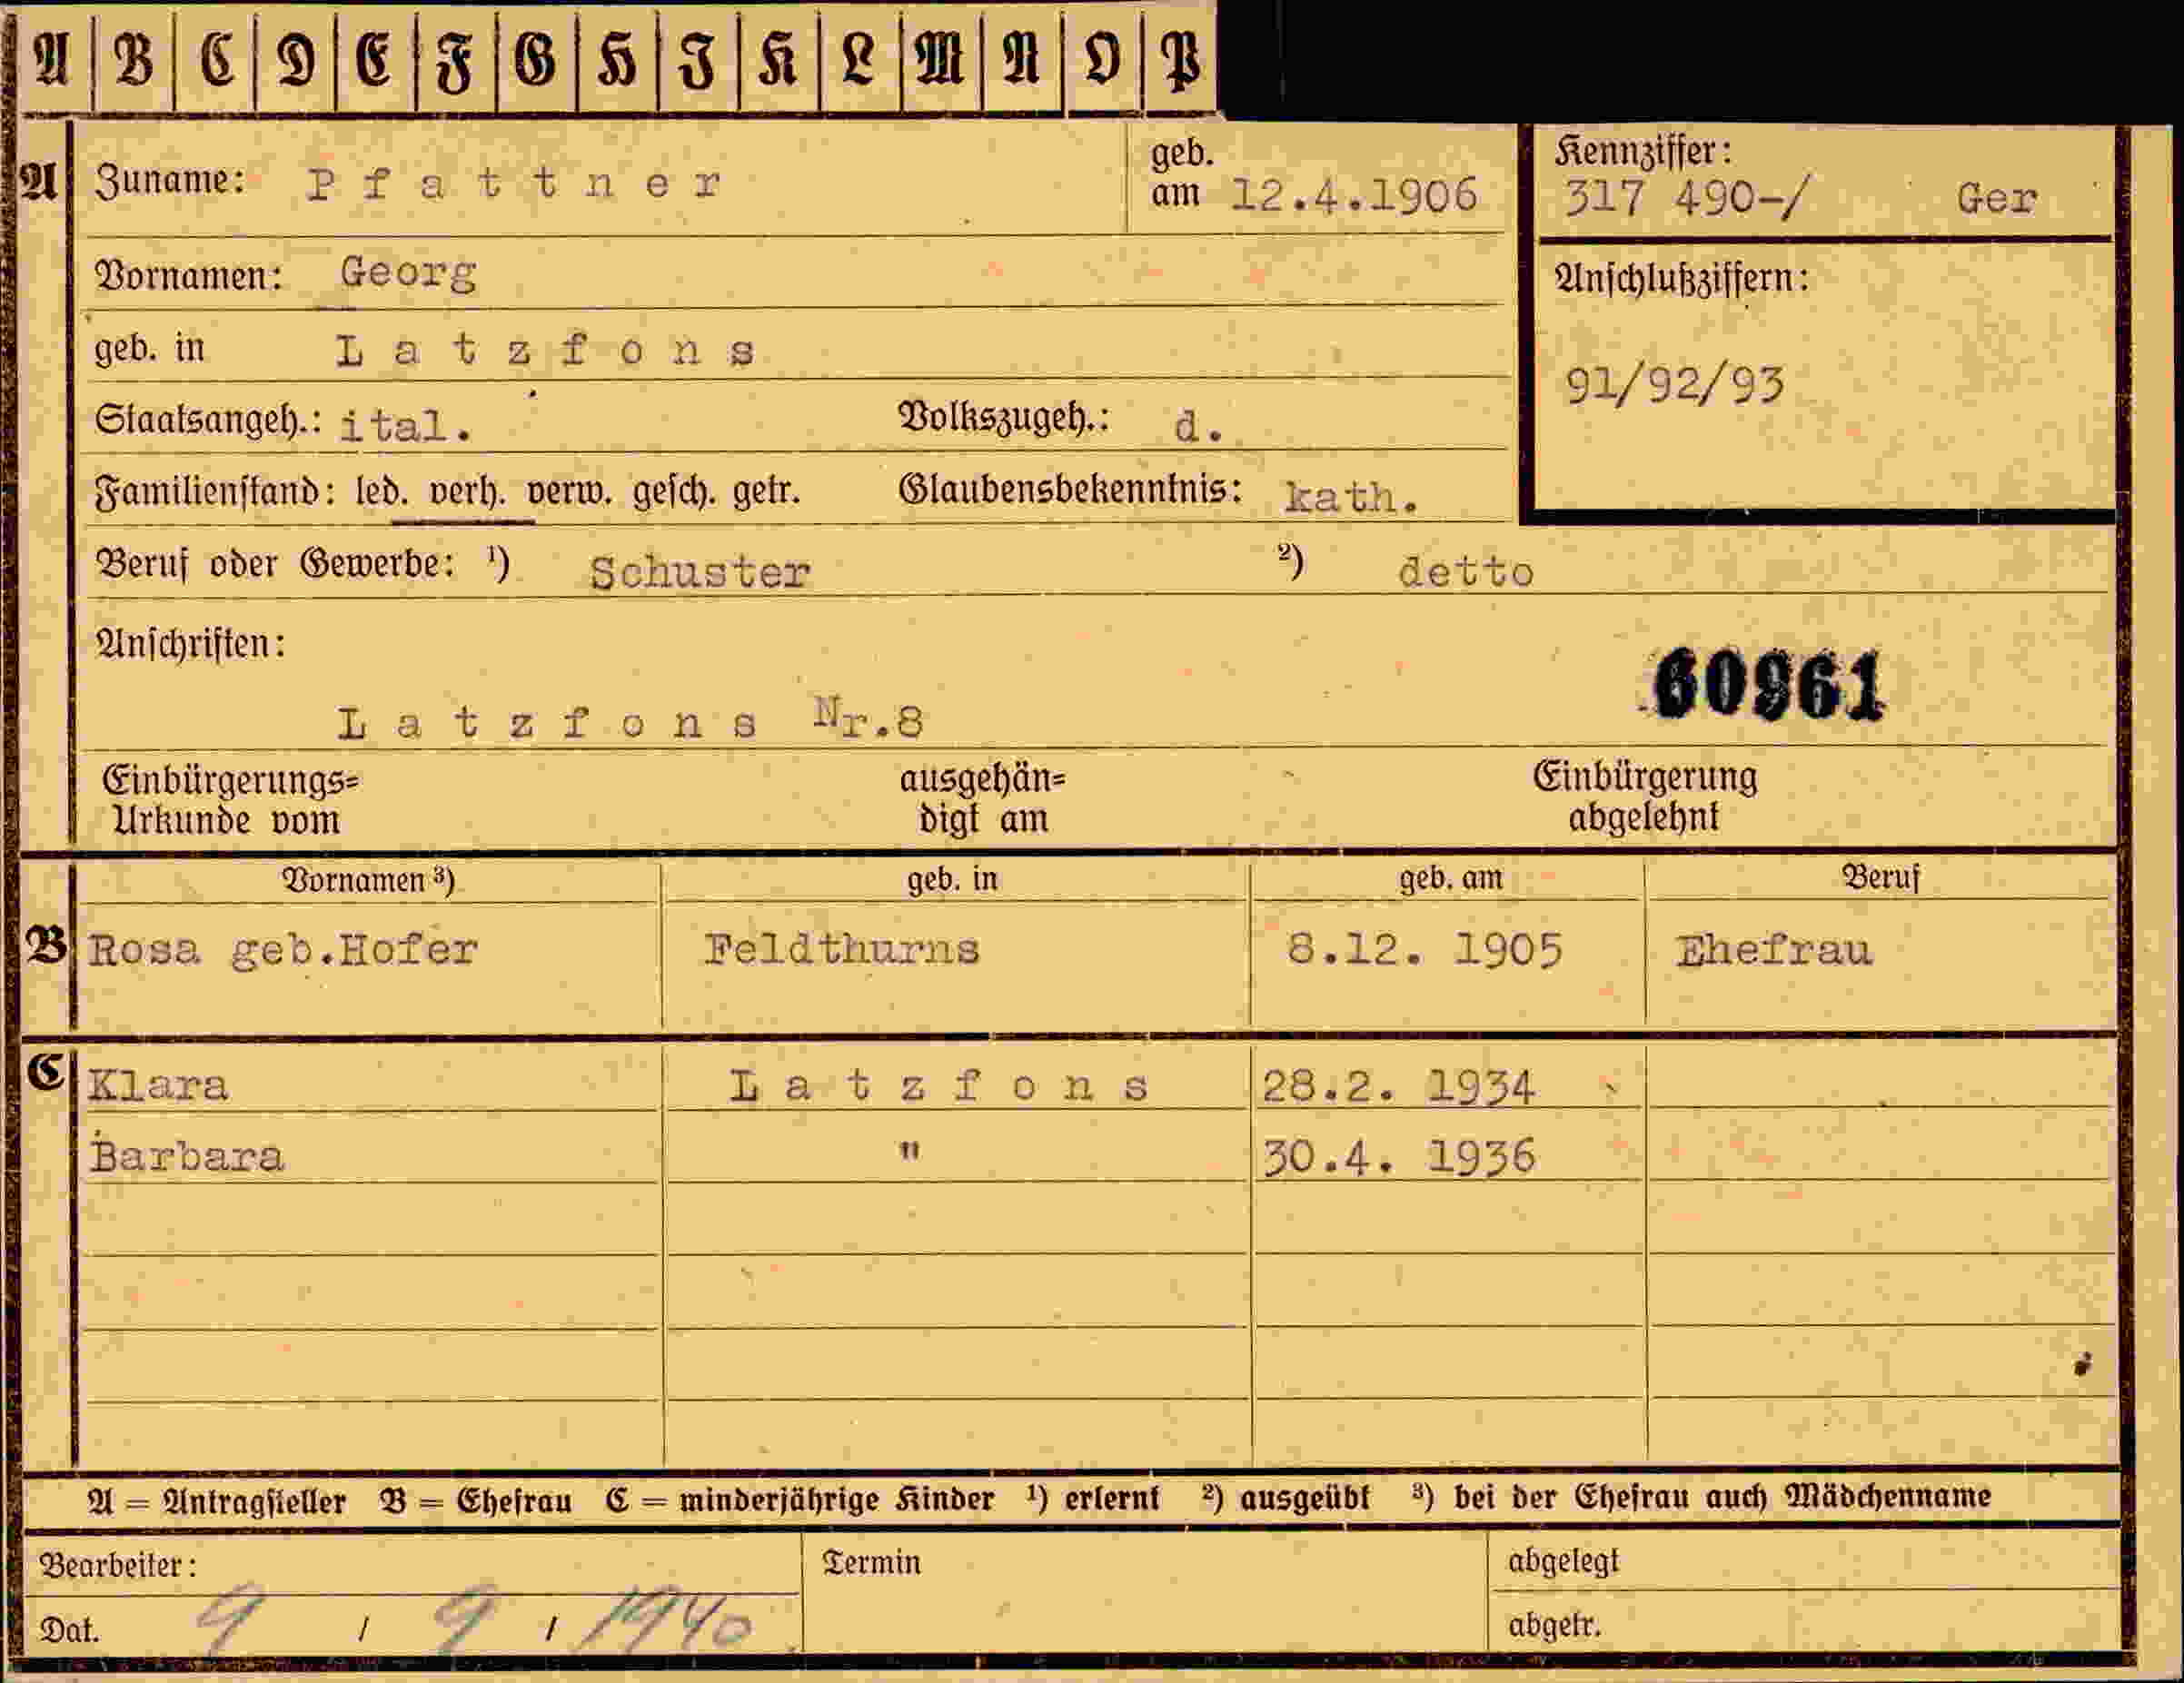 A B C D E F G H I K L M N O P
A Zuname: Pfattner geb. am 12.4.1906 Kennziffer: 317 490-/ Ger
Vornamen: Georg
Anschlußziffern:
geb. in Latzfons
91/92/93
Staatsangeh.: ital. Volkszugeh.: d.
Familienstand: led. verh. verw. gesch. getr. Glaubensbekenntnis: kath.
Beruf oder Gewerbe: ¹) Schuster ²) detto
Anschriften:
60961
Latzfons Nr.8
Einbürgerungs= ausgehän= Einbürgerung
Urkunde vom digt am abgelehnt
Vornamen ³) geb. in geb. am Beruf
B Rosa geb.Hofer Feldthurns 8.12. 1905 Ehefrau
C Klara Latzfons 28.2. 1934
Barbara " 30.4. 1936
A = Antragsteller B = Ehefrau C = minderjährige Kinder ¹) erlernt ²) ausgeübt ³) bei der Ehefrau auch Mädchenname
Bearbeiter: Termin abgelegt
Dat. 9 / 9 / 1940 abgetr.